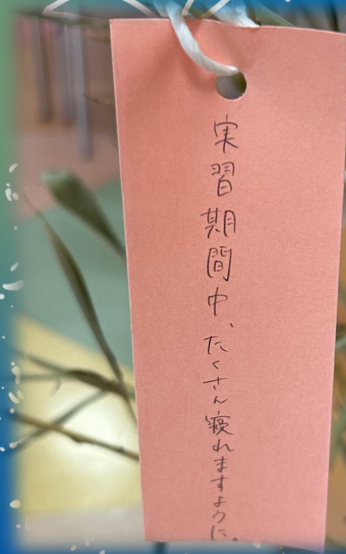 実習期間中、たくさん寝れますように。